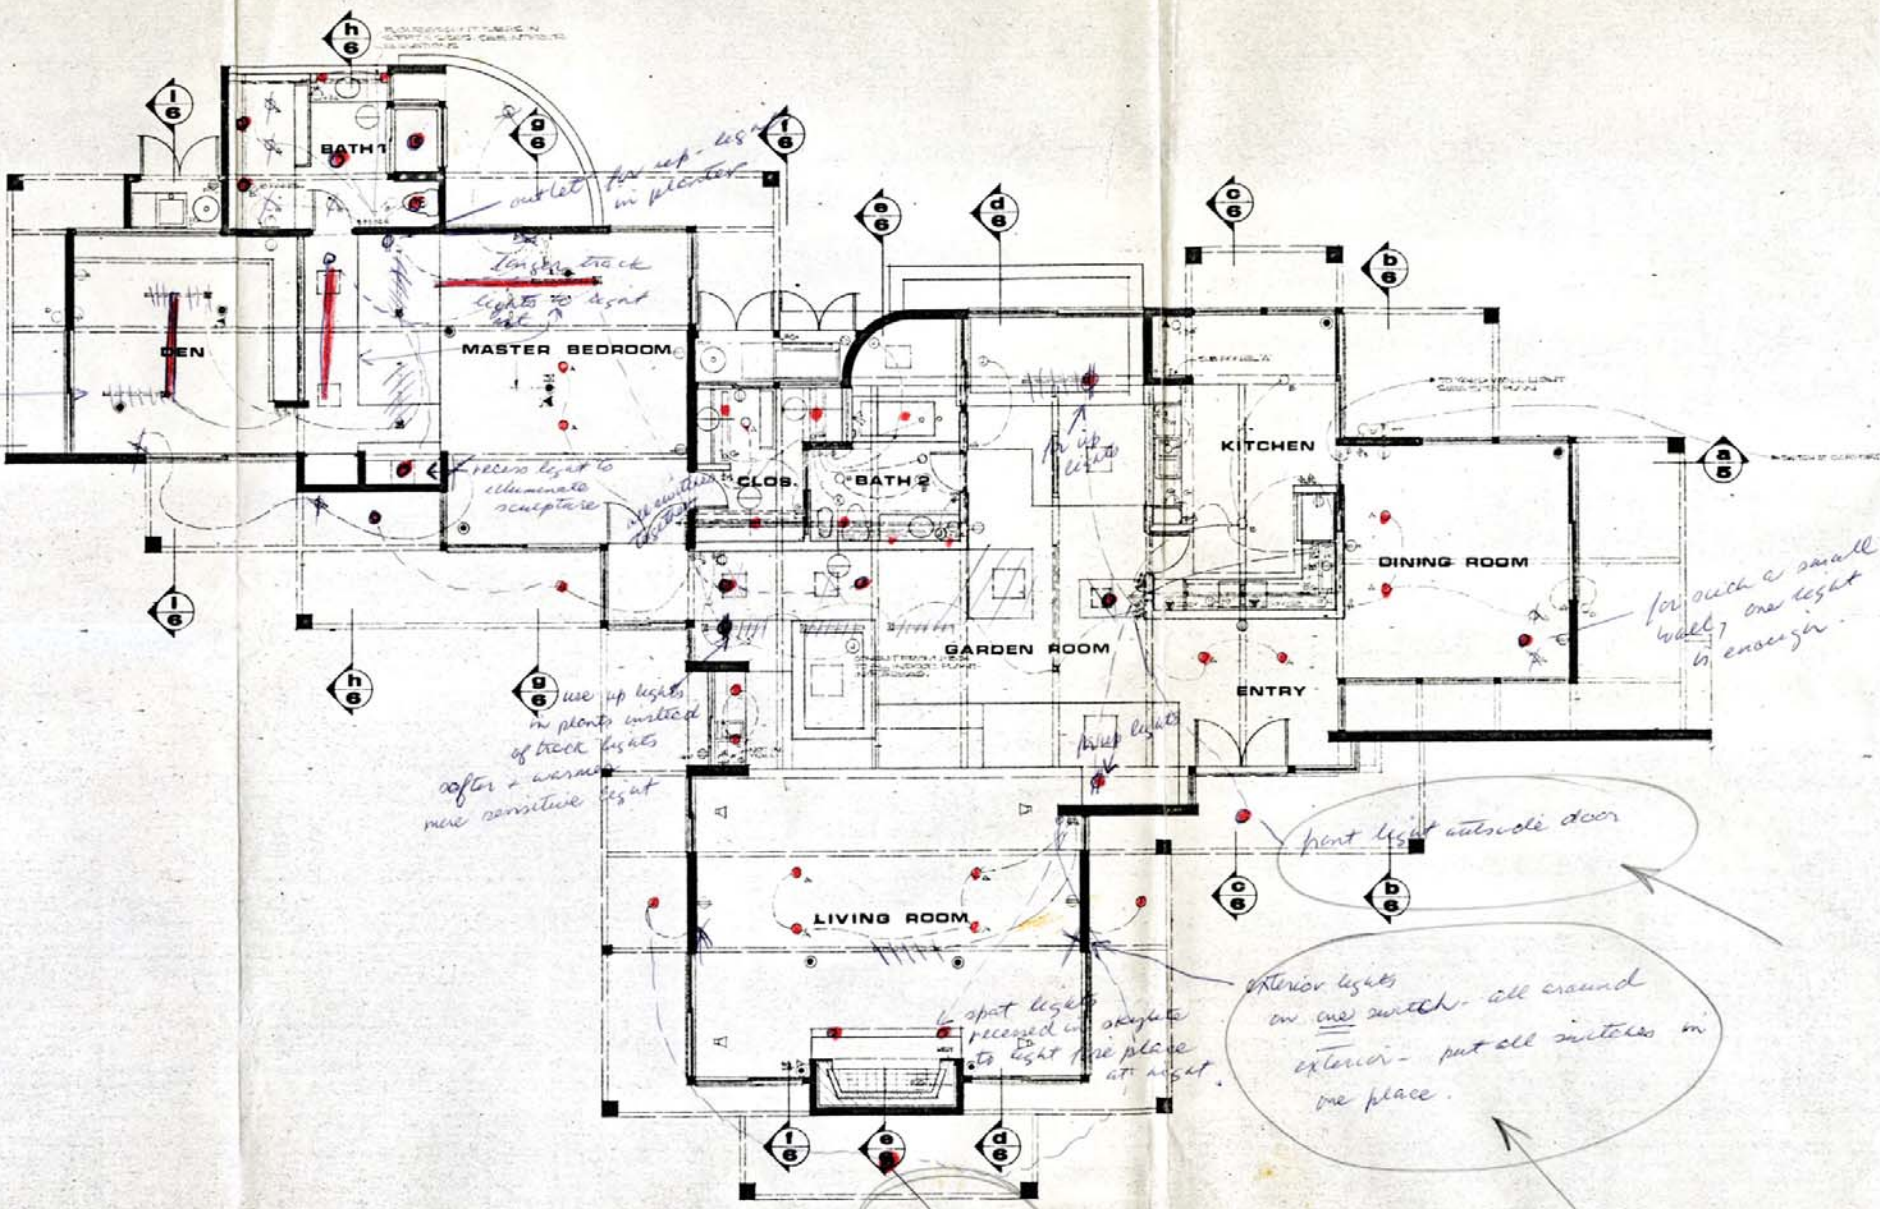 h
6
l
6
g
6
f
6
BATH 1
outlet for up-light
in planter
e
6
d
6
c
6
b
6
longer track
lights to light
art
DEN
MASTER BEDROOM
for up
lights
KITCHEN
a
5
recess light to
illuminate
sculpture
CLOS.
BATH 2
DINING ROOM
for such a small
wall, one light
is enough.
l
6
GARDEN ROOM
ENTRY
h
6
g
6
use up lights
in plants instead
of track lights
softer + warmer
more sensitive light
for up lights
front light outside door
c
6
b
6
LIVING ROOM
exterior lights
on one switch - all around
exterior - put all switches in
one place.
spot lights
recessed in skylite
to light fire place
at night.
f
6
e
d
6